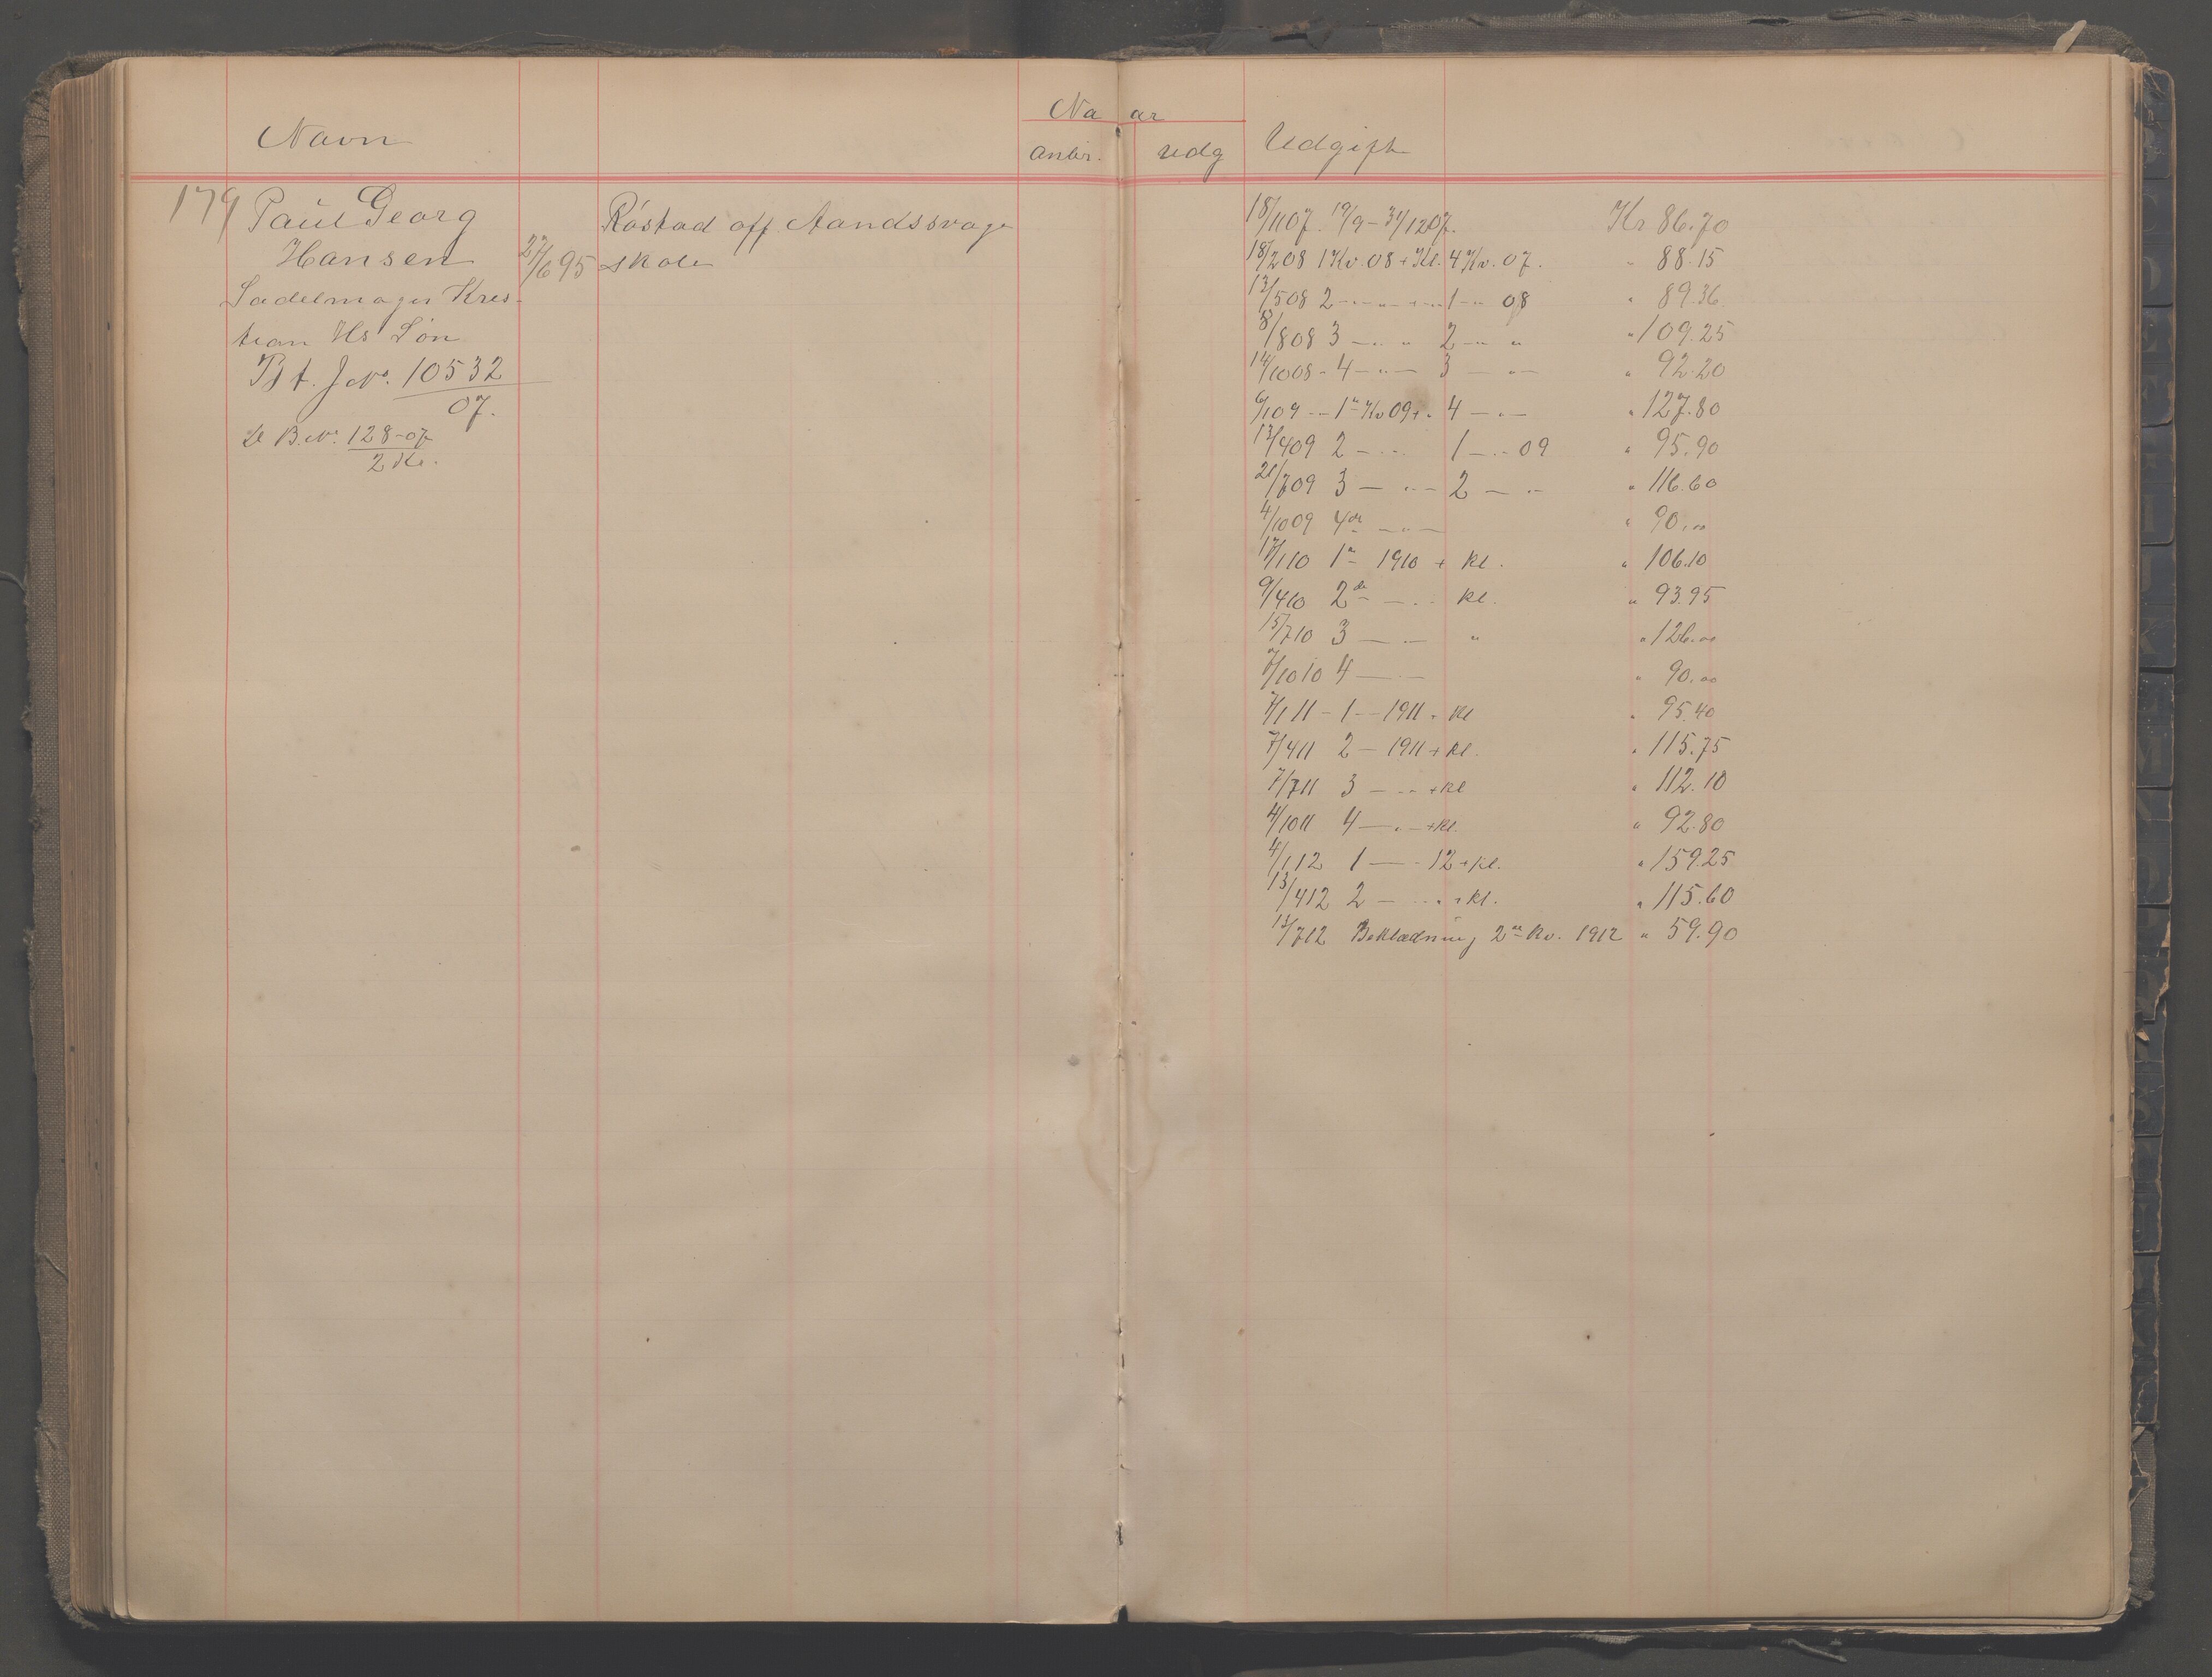 Navn
Na ar
anbr. udg
Udgift
179 Paul Georg
Hansen
27/6 95
Sadelmager Kris-
tian Hs Søn
Bt. J. No. 10532
07.
Se B. No. 128-07
2 Kl.
Røstad off. Aandssvage
skole
18/11 07. 19/9 - 31/12 07. Kr 86.70
18/2 08 1 Kv. 08 + Kl. 4 Kv. 07. " 88.15
13/5 08 2 - " - " - + - " 1 - " 08 " 89.36
8/8 08 3 - " - " 2 - " - " " 109.25
14/10 08 - 4 - " - 3 - " - " 92.20
6/1 09 - - 1ste Kv 09 + " 4 - " - " 127.80
13/4 09 2 - " - 1 - " - 09 " 95.90
21/7 09 3 - " - 2 - " - " 116.60
4/10 09 4de - " - " 90.00
17/1 10 1ste 1910 + Kl. " 106.10
9/4 10 2de - " - Kl. " 93.95
15/7 10 3 - " - " " 126.00
7/10 10 4 - " - " 90.00
7/1 11 - 1 - - 1911 + Kl " 95.40
7/4 11 2 - 1911 + Kl. " 115.75
7/7 11 3 - " - + Kl " 112.10
4/10 11 4 - " - + Kl. " 92.80
4/1 12 1 - - 12 + Kl. " 159.25
13/4 12 2 - " - " + Kl. " 115.60
13/7 12 Beklædning 2de Kv. 1912 " 59.90